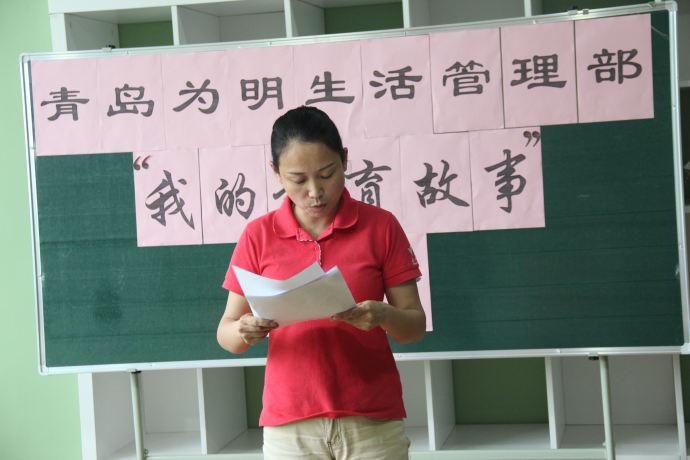 青岛为明生活管理部
“我的育故事”